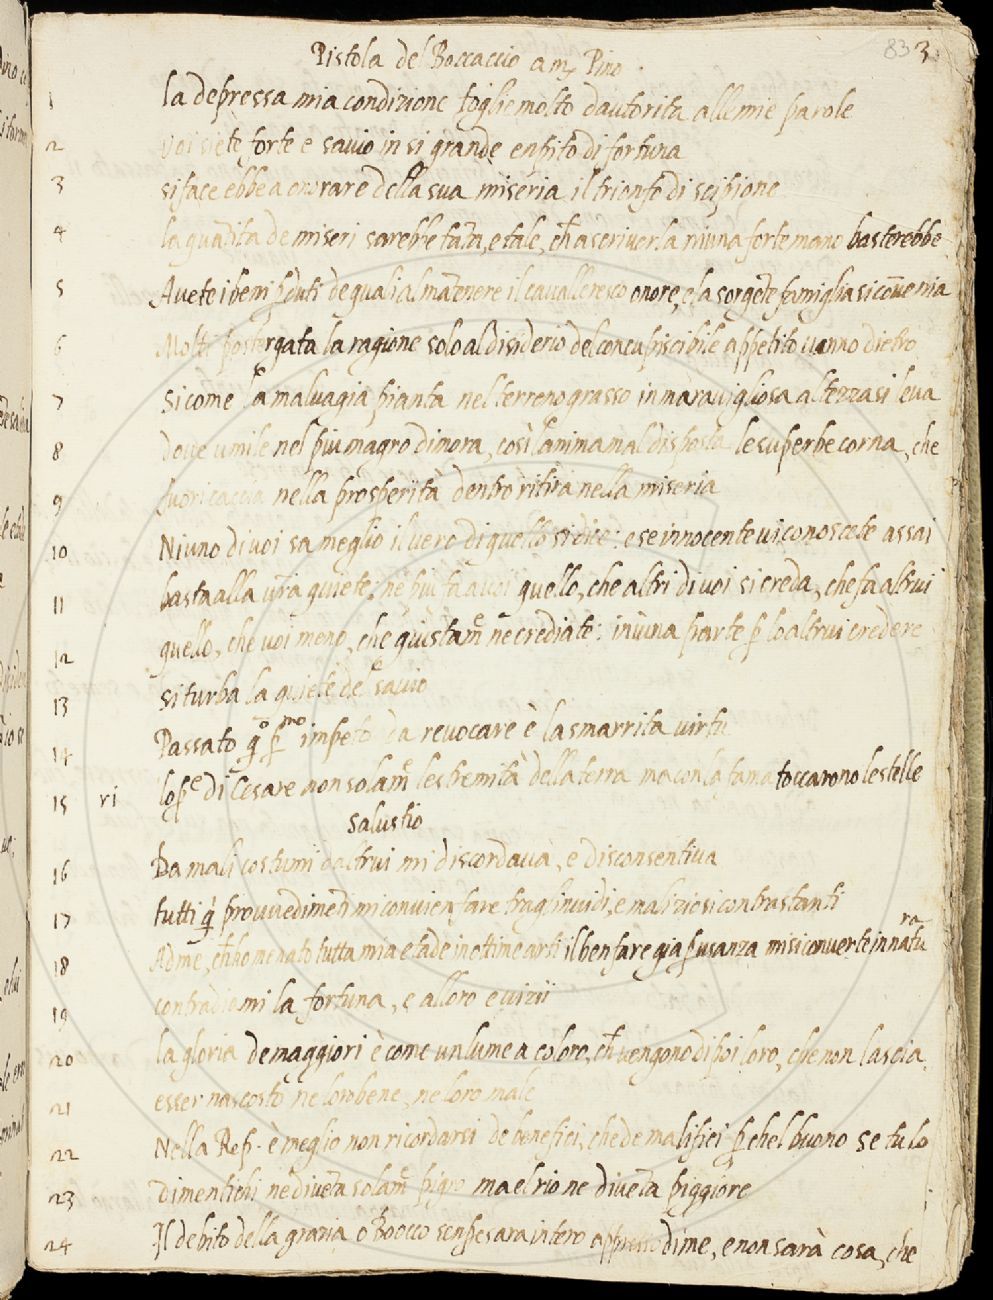 83 3
Pistola del Boccaccio a mr Pino.
1 la depressa mia condizione toglie molto d'autorita alle mie parole
2 Voi siete forte e savio in si grande enpito di fortuna
3 siface ebbe a onorare della sua miseria il trionfo di scipione
4 la quātita de miseri sarebbe tāta, e tale, ch̄ a scriverla niuna forte mano basterebbe
5 Avete i beni pduti de quali al mātenere il cavalleresco onore, e la sorgēte famiglia si cōvenia
6 Molti postergata la ragione solo al disiderio del concupiscibile appetito vanno dietro
7 Si come la malvagia pianta nel terreno grasso in maravigliosa altezza si leva
8 dove umile nel piu magro dimora, così lanima mal disposta le superbe corna, che
9 fuori caccia nella prosperita dentro ritira nella miseria
10 Niuno di voi sa meglio il vero di quello si dice: e se innocente vi conoscete assai
11 basta alla vr̄a quiete; ne piu fa a voi quello, che altri di voi si creda, che fa altrui
12 quello, che voi meno, che giustamē ne crediate: in una parte p lo altrui credere
13 si turba la quiete del savio
14 Passato qo pmo impeto da revocare è la smarrita virtu
15 ri lope di Cesare non solamē le stremità della terra ma con la fama toccarono le stelle
Salustio
16 Da mali costumi daltrui mi discordava, e disconsentiva
17 tutti q provvedimēti mi convien fare tra glinvidi, e maliziosi contrastanti
18 Ad me, ch̄ ho menato tutta mia etade in ottime arti il ben fare gia p usanza misi converte in natura
19 contradiami la fortuna, e alloro e vizii
20 la gloria de maggiori è come un lume a coloro, ch̄ vengono di poi loro, che non lascia
21 esser nascosto ne loro bene, ne loro male
22 Nella Rep. è meglio non ricordarsi de benefici, che de malifici p che l buono se tu lo
23 dimentichi ne divēta solamē pigro ma el rio ne divēta piggiore
24 Il debito della grazia o Boocco senpe sara intero appresso di me, e non sarà cosa, che